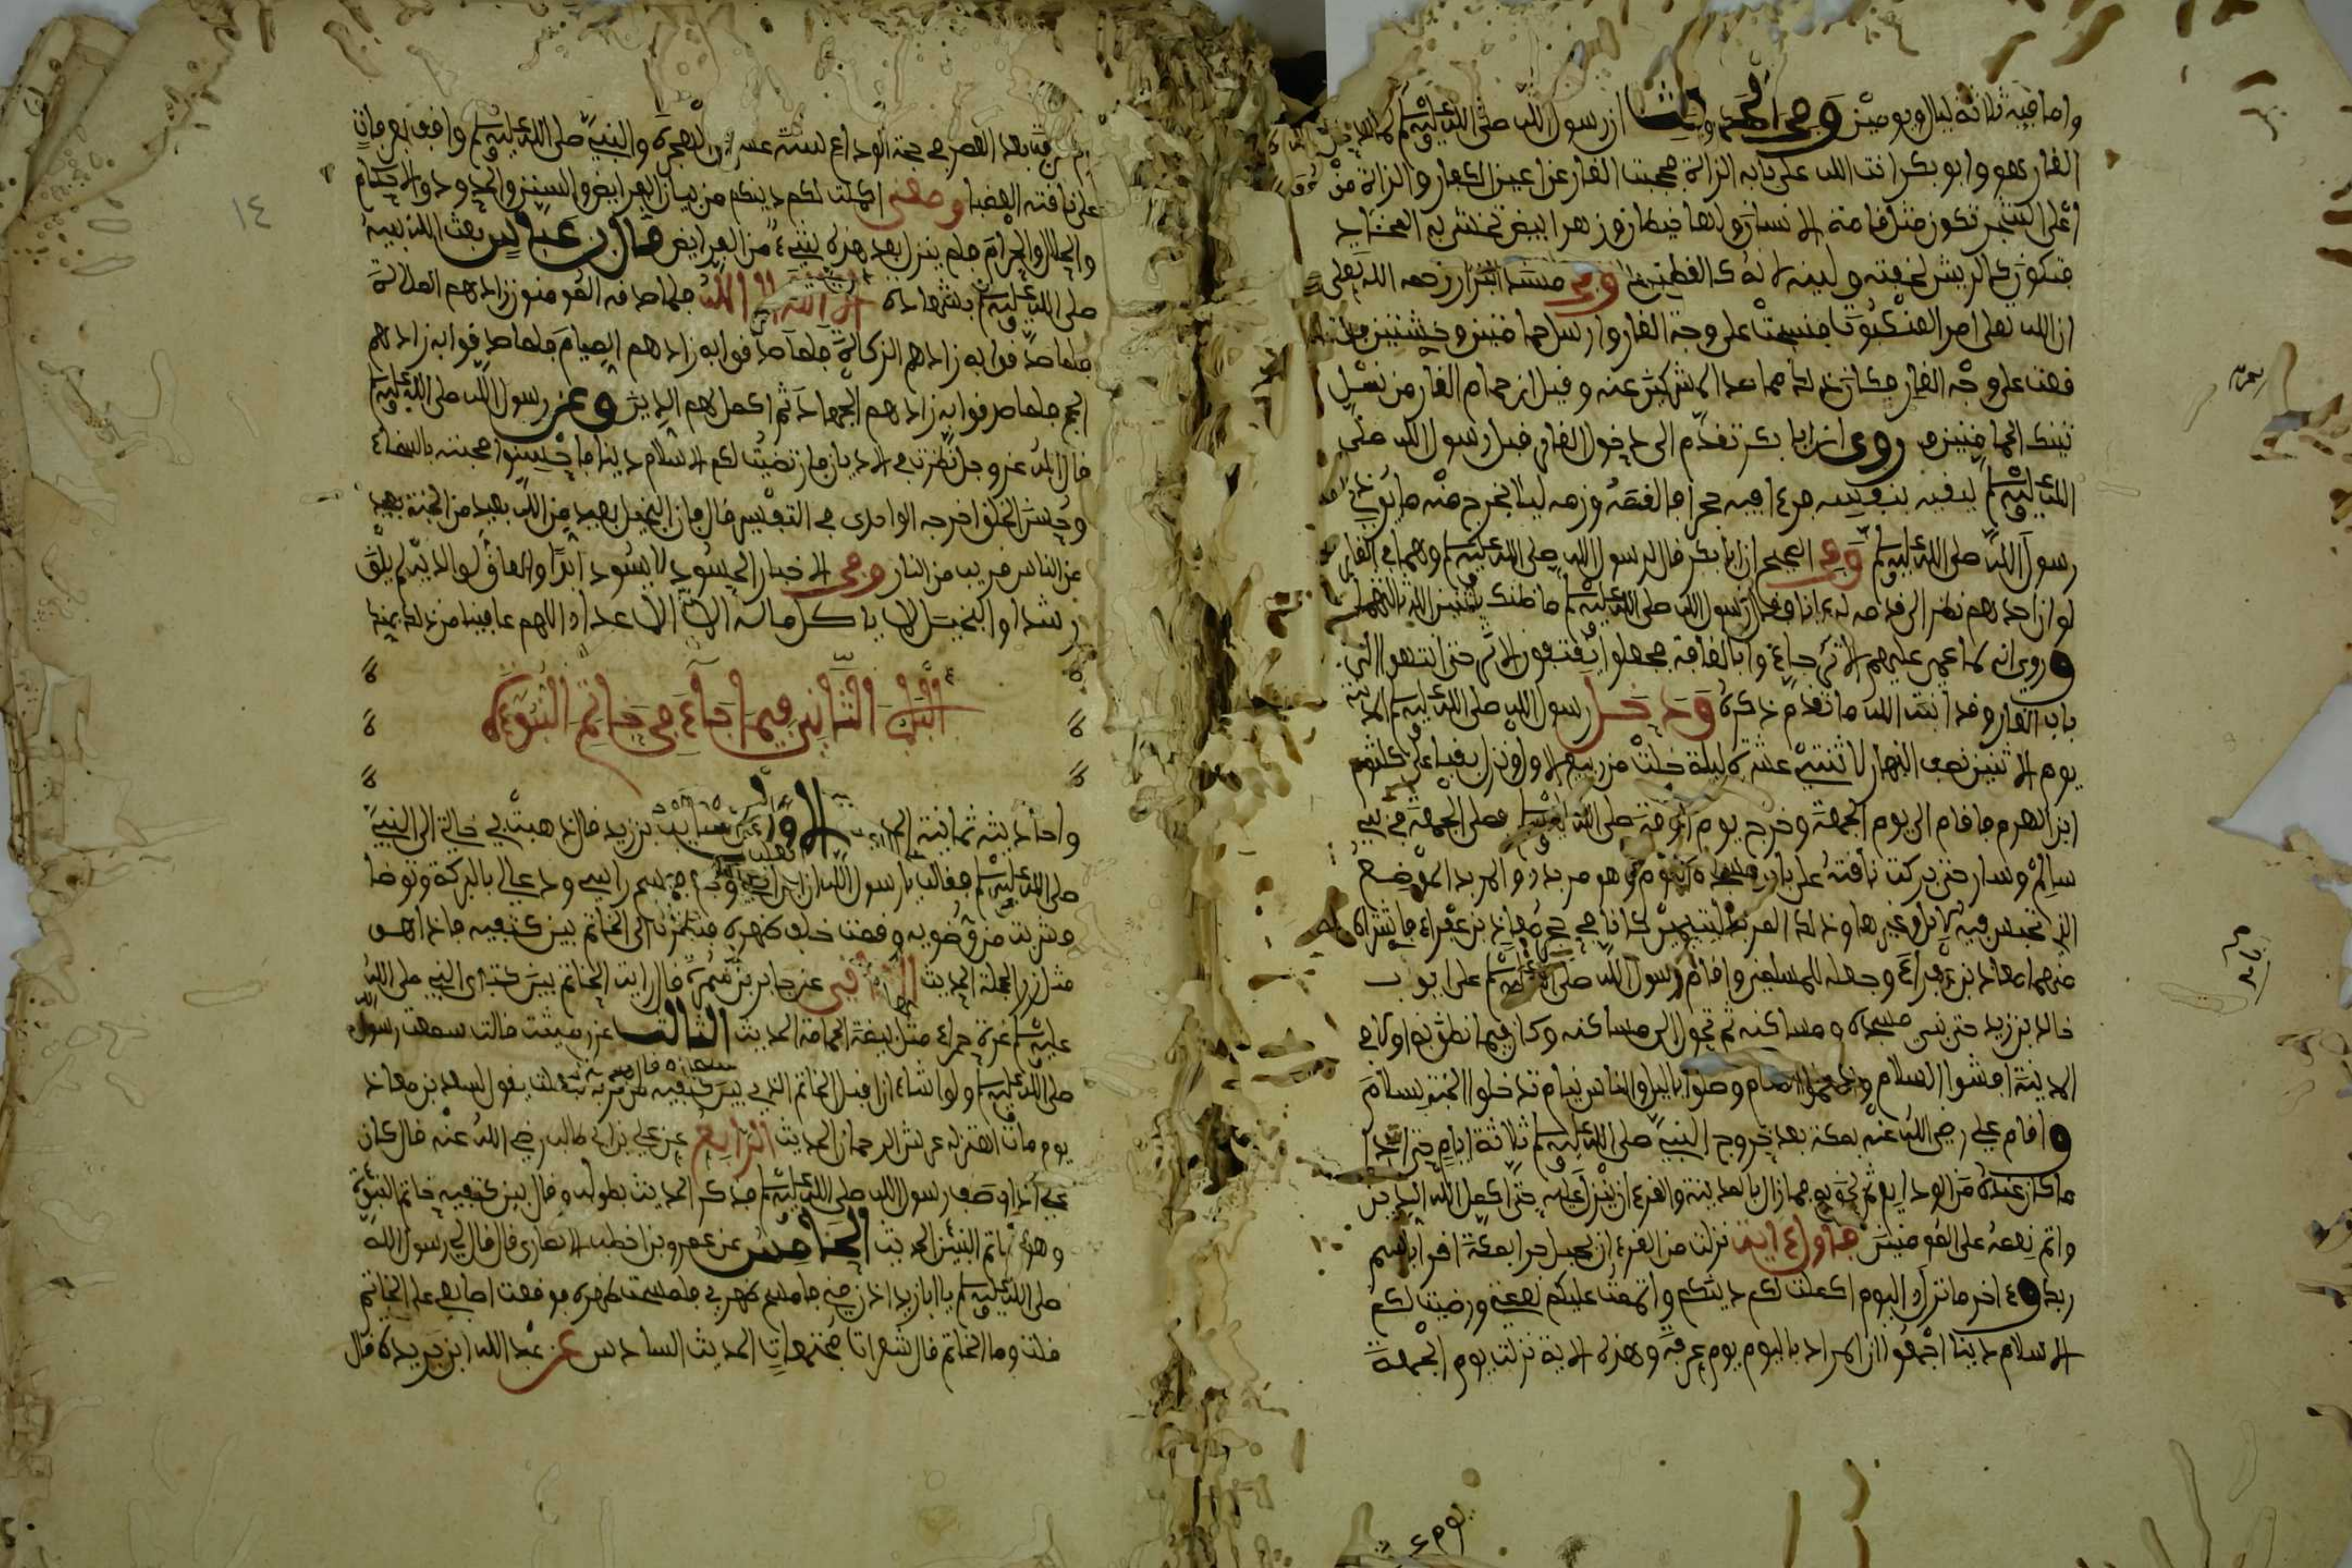 واقاما فيه ثلاثة ليال ويومين وفي الحديث ان رسول الله صلى الله عليه وسلم لما دخل
الغار هو وابو بكر انبت الله على بابه الراءة فحجبت الغار عن اعين الكفار والراءة من
اعلى الشجر تكون مثل قامة الانسان ولها خيطان وزهر ابيض تحشى به المخاد
فيكون كالريش لخفته ولينه لانه كالقطن وفي مسند البزار رحمه الله تعلى
ان الله تعلى امر العنكبوت فنسجت على وجه الغار وارسل حمامتين وحشيتين
فوقفتا على وجه الغار فكان ذلك مما صد المشركين عنه وقيل ان حمام الغار من نسل
تينك الحمامتين وروى ان ابا بكر تقدم الى دخول الغار قبل رسول الله صلى
الله عليه وسلم ليقيه بنفسه فرءا فيه جحرا فالقمه قدمه ليلا يخرج منه ما يؤذي
رسول الله صلى الله عليه وسلم وفي الصحيح ان ابا بكر قال لرسول الله صلى الله عليه وسلم وهما في الغار
لو ان احدهم نظر الى قدميه لرءانا فقال رسول الله صلى الله عليه وسلم ما ظنك باثنين الله ثالثهما
وروي انه لما عمي عليهم الاثر جاءوا بالقافة فجعلوا يقتفون الاثر حتى انتهوا الى
باب الغار وقد انبت الله ما تقدم ذكره ودخل رسول الله صلى الله عليه وسلم المدينة
يوم الاثنين نصف النهار لاثنتي عشرة ليلة خلت من ربيع الاول ونزل بقباء على كلثوم
ابن الهرم فاقام الى يوم الجمعة وخرج يوم الجمعة صلى الله عليه وسلم فصلى الجمعة في بني
سالم وسار حتى بركت ناقته على باب مسجده اليوم وهو مربد والمربد الموضع
الذي تحبس فيه الابل وغيرها وذلك المربد ليتيمين كانا في حجر معاذ بن عفراء فاشتراه
منهما معاذ بن عفراء وجعله للمسلمين واقام رسول الله صلى الله عليه وسلم على ابي ايوب
خالد بن زيد حتى بنى مسجده ومساكنه ثم تحول الى مساكنه وكان فيما نطق به اولا في
المدينة افشوا السلام واطعموا الطعام وصلوا بالليل والناس نيام تدخلوا الجنة بسلام
واقام علي رضي الله عنه بمكة بعد خروج النبي صلى الله عليه وسلم ثلاثة ايام حتى ادا
ما كان عنده من الودايع ثم لحق به فما زال بالمدينة والقرءان ينزل عليه حتى اكمل الله الدين
واتم نعمه على المومنين فاول ءاية نزلت من القرءان بجبل حرا بمكة اقرا باسم
ربك وءاخر ما نزل اليوم اكملت لكم دينكم واتممت عليكم نعمتي ورضيت لكم
الاسلام دينا اجمعوا ان المراد باليوم يوم عرفة وهذه الاية نزلت يوم الجمعة
يوم عرفة بعد العصر في حجة الوداع لسنة عشر من الهجرة والنبي صلى الله عليه وسلم واقف بعرفات
على ناقته العضبا ومعنى اكملت لكم دينكم من بيان الفرايض والسنن والحدود والاحكام
والحلال والحرام فلم ينزل بعد هذه شيء من الفرايض قال ابن عباس بعث الله نبيه
صلى الله عليه وسلم بشهادة لا اله الا الله فلما صدقه المومنون زادهم الصلاة
فلما صدقوا به زادهم الزكاة فلما صدقوا به زادهم الصيام فلما صدقوا به زادهم
الحج فلما صدقوا به زادهم الجهاد ثم اكمل لهم الدين وعن رسول الله صلى الله عليه وسلم
قال الله عز وجل نظرت في الاديان فارتضيت لكم الاسلام دينا فاحسنوا صحبته بالسخاء
وحسن الخلق اخرجه الواحدي في التفسير قال فان البخيل بعيد من الله بعيد من الجنة بعيد
عن الناس قريب من النار وفي الاخبار الحسود لا يسود ابدا والعاق لوالديه لم يلق
رشدا والبخيل لا ياكل ماله الا الاعداء اللهم عافينا من ذلك بمنه
الباب الثاني فيما جاء في خاتم النبوءة
واحاديثه ثمانية الحديث الاول عن السايب بن يزيد قال ذهبت بي خالتي الى النبي
صلى الله عليه وسلم فقالت يا رسول الله ان ابن اختي وجع فمسح راسي ودعا لي بالبركة وتوضا
وشربت من وضويه وقمت خلف ظهره فنظرت الى الخاتم بين كتفيه فاذا هو
مثل زر الحجلة الحديث الثاني عن جابر بن سمرة قال رايت الخاتم بين كتفي النبي صلى الله
عليه وسلم غدة حمراء مثل بيضة الحمامة الحديث الثالث عن رميثة قالت سمعت رسول الله
صلى الله عليه وسلم ولو اشاء ان اقبل الخاتم الذي بين كتفيه من قربه لفعلت يقول لسعد بن معاذ
يوم مات اهتز له عرش الرحمان الحديث الرابع عن علي بن ابي طالب رضي الله عنه قال كان
علي اذا وصف رسول الله صلى الله عليه وسلم فذكر الحديث بطوله وقال بين كتفيه خاتم النبوة
وهو خاتم النبيين الحديث الخامس عن عمرو بن اخطب الانصاري قال قال لي رسول الله
صلى الله عليه وسلم يا ابا زيد ادن مني فامسح ظهري فلمست ظهره فوقعت اصابعي على الخاتم
قلت وما الخاتم قال شعرات مجتمعات الحديث السادس عن عبد الله ابن بريدة قال